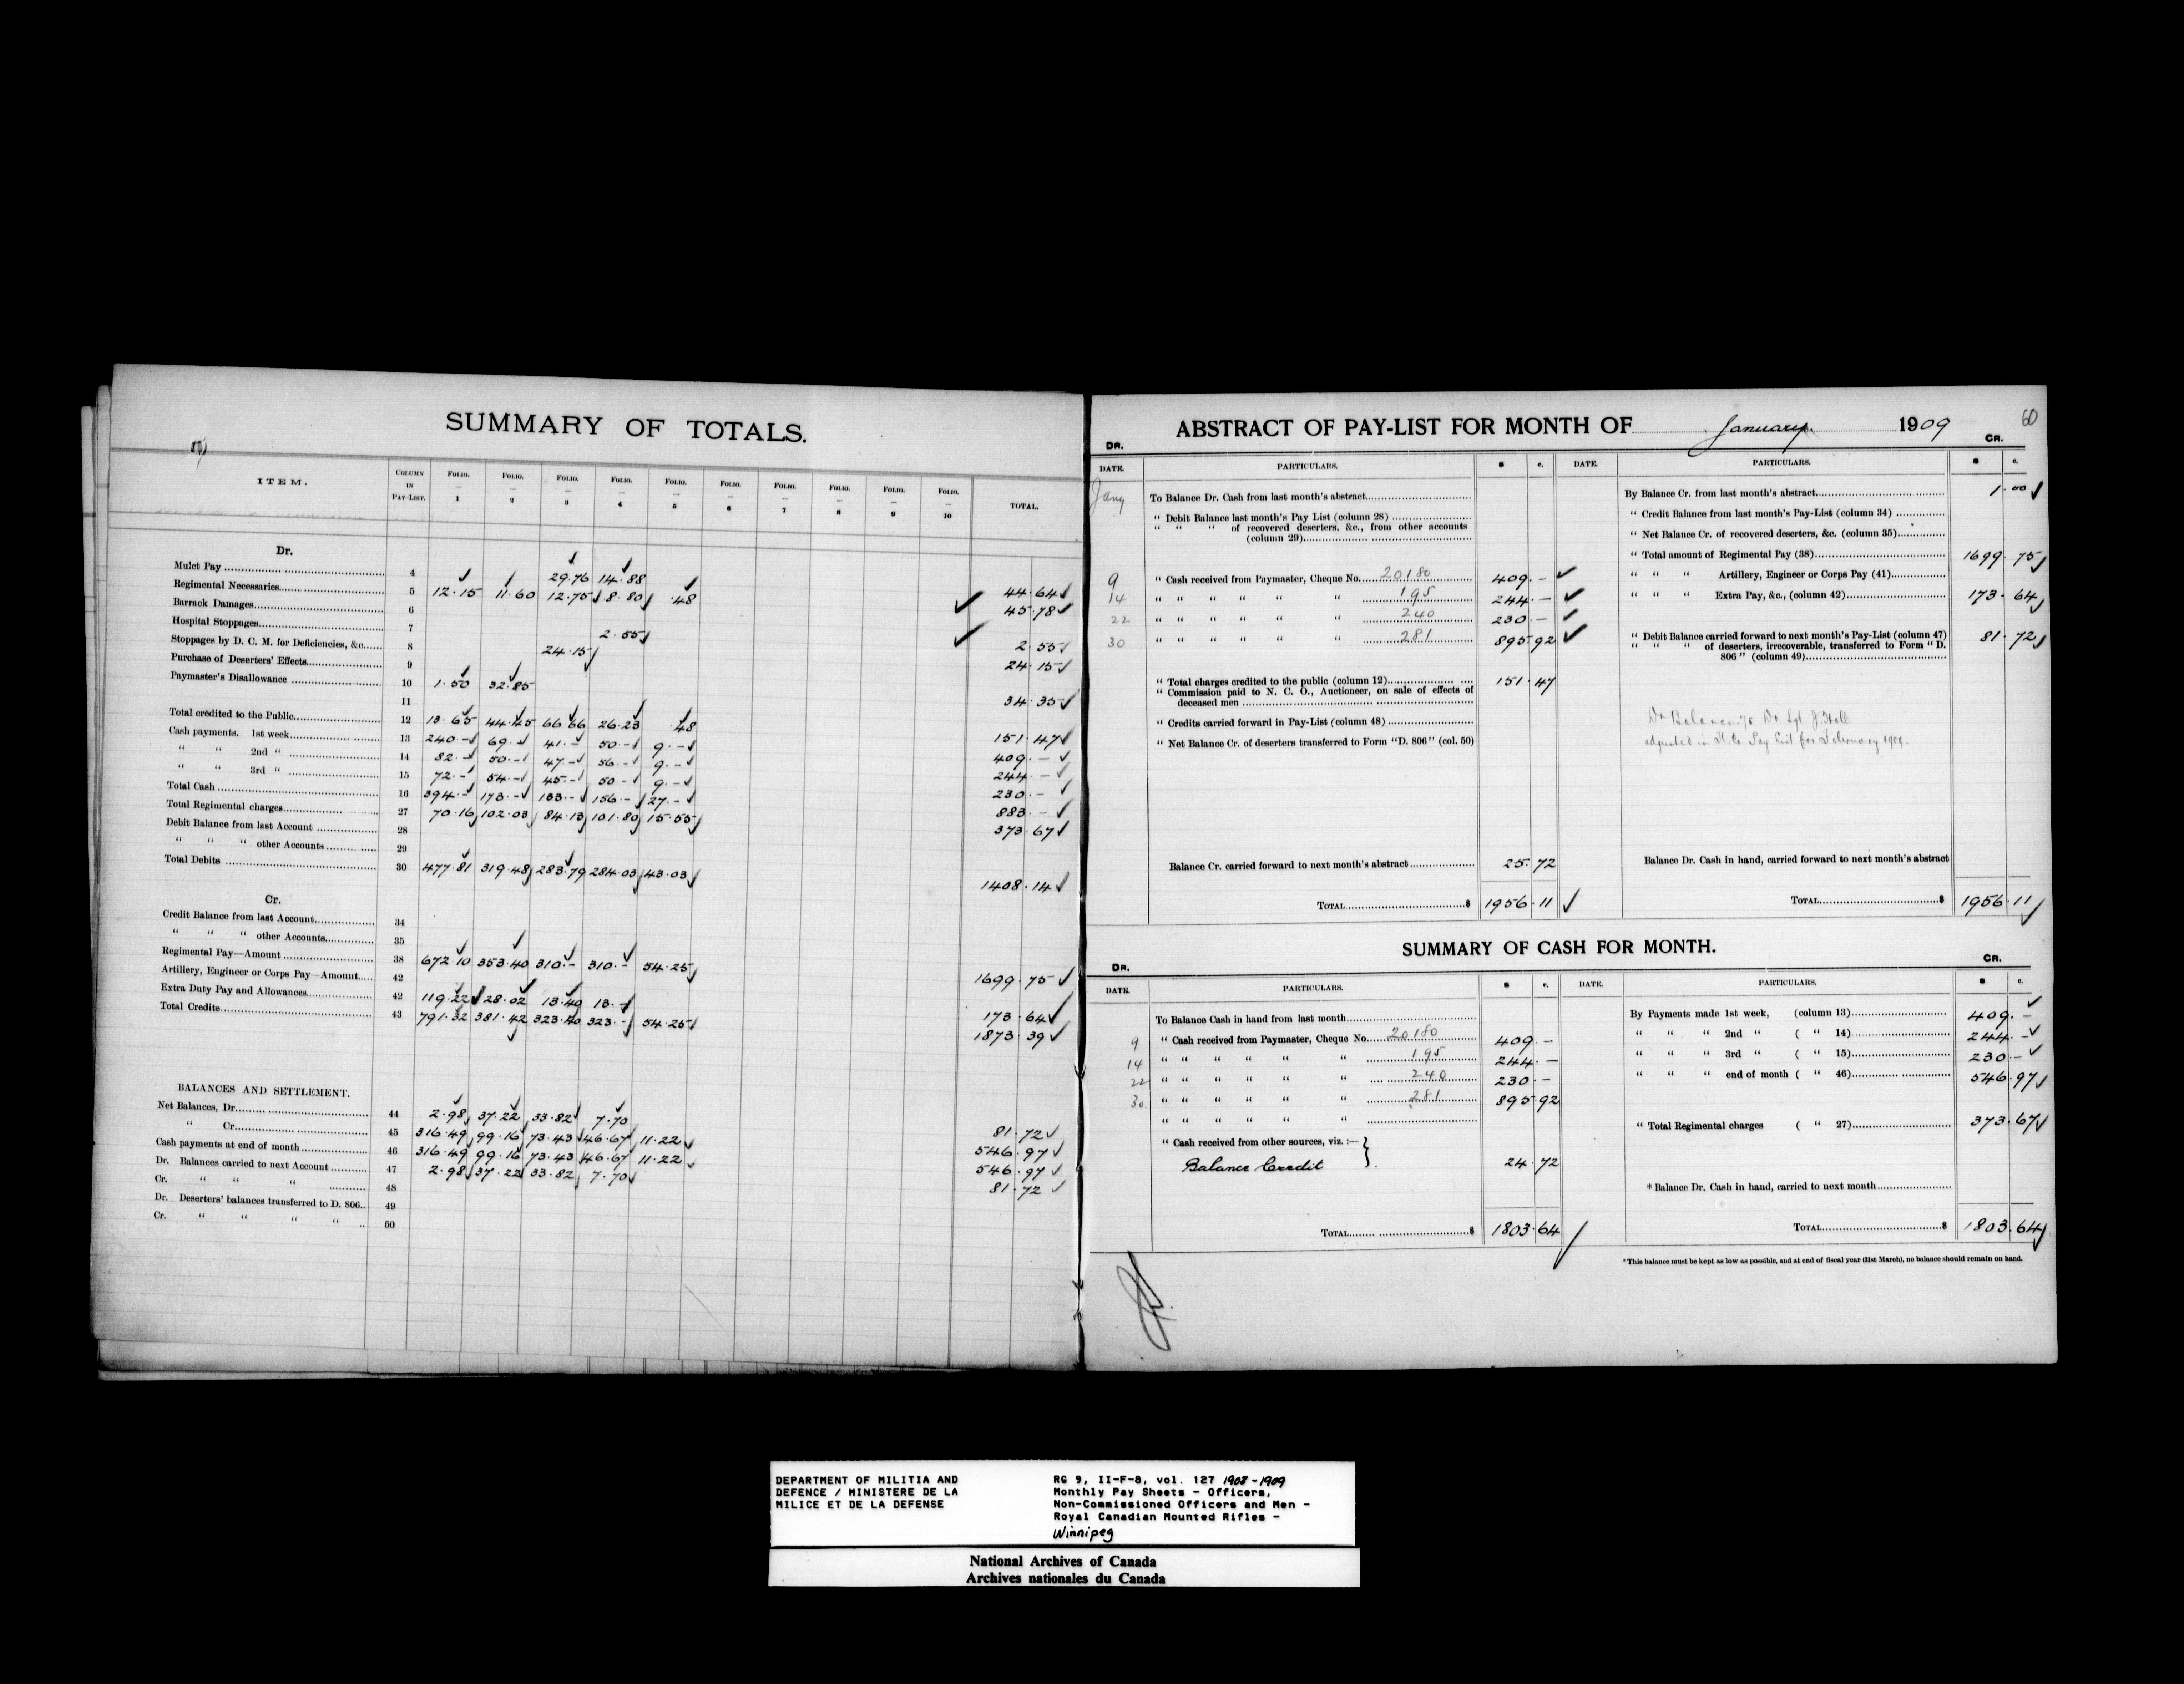 SUMMARY OF TOTALS.
ITEM. COLUMN IN PAY-LIST. FOLIO. — 1 FOLIO. — 2 FOLIO. — 3 FOLIO. — 4 FOLIO. — 5 FOLIO. — 6 FOLIO. — 7 FOLIO. — 8 FOLIO. — 9 FOLIO. — 10 TOTAL.
Dr.
Mulct Pay 4 29.76 14.88 44.64
Regimental Necessaries 5 12.15 11.60 12.75 8.80 .48 45.78
Barrack Damages 6
Hospital Stoppages 7 2.55 2.55
Stoppages by D. C. M. for Deficiencies, &c. 8 24.15 24.15
Purchase of Deserters' Effects 9
Paymaster's Disallowance 10 1.50 32.85 34.35
11
Total credited to the Public 12 13.65 44.45 66.66 26.23 .48 151.47
Cash payments. 1st week 13 240.- 69.- 41.- 50.- 9.- 409.-
" " 2nd " 14 82.- 50.- 47.- 56.- 9.- 244.-
" " 3rd " 15 72.- 54.- 45.- 50.- 9.- 230.-
Total Cash 16 394.- 173.- 133.- 156.- 27.- 883.-
Total Regimental charges 27 70.16 102.03 84.13 101.80 15.55 373.67
Debit Balance from last Account 28
" " " other Accounts 29
Total Debits 30 477.81 319.48 283.79 284.03 43.03 1408.14
Cr.
Credit Balance from last Account 34
" " " other Accounts 35
Regimental Pay—Amount 38 672.10 353.40 310.- 310.- 54.25 1699.75
Artillery, Engineer or Corps Pay—Amount 42
Extra Duty Pay and Allowances 42 119.22 28.02 13.40 13.- 173.64
Total Credits 43 791.32 381.42 323.40 323.- 54.25 1873.39
BALANCES AND SETTLEMENT.
Net Balances, Dr. 44 2.98 37.22 33.82 7.70 81.72
" Cr. 45 316.49 99.16 73.43 46.67 11.22 546.97
Cash payments at end of month 46 316.49 99.16 73.43 46.67 11.22 546.97
Dr. Balances carried to next Account 47 2.98 37.22 33.82 7.70 81.72
Cr. " " " 48
Dr. Deserters' balances transferred to D. 806.. 49
Cr. " " " " .. 50
60
ABSTRACT OF PAY-LIST FOR MONTH OF January 1909
DR. CR.
DATE. PARTICULARS. $ c. DATE. PARTICULARS. $ c.
Jany To Balance Dr. Cash from last month's abstract
" Debit Balance last month's Pay List (column 28)
" " " of recovered deserters, &c., from other accounts
(column 29)
9 " Cash received from Paymaster, Cheque No. 20180 409.-
14 " " " " " " 195 244.-
22 " " " " " " 240 230.-
30 " " " " " " 281 895.92
" Total charges credited to the public (column 12) 151.47
" Commission paid to N. C. O., Auctioneer, on sale of effects of
deceased men
" Credits carried forward in Pay-List (column 48)
" Net Balance Cr. of deserters transferred to Form "D. 806" (col. 50)
Balance Cr. carried forward to next month's abstract 25.72
TOTAL $ 1956.11
By Balance Cr. from last month's abstract 1.00
" Credit Balance from last month's Pay-List (column 34)
" Net Balance Cr. of recovered deserters, &c. (column 35)
" Total amount of Regimental Pay (38) 1699.75
" " " Artillery, Engineer or Corps Pay (41)
" " " Extra Pay, &c., (column 42) 173.64
" Debit Balance carried forward to next month's Pay-List (column 47) 81.72
" " " of deserters, irrecoverable, transferred to Form "D.
806" (column 49)
Dr Balance Sgt. J. Hall
adjusted in Pay List for February 1909.
Balance Dr. Cash in hand, carried forward to next month's abstract
TOTAL $ 1956.11
SUMMARY OF CASH FOR MONTH.
DR. CR.
DATE. PARTICULARS. $ c. DATE. PARTICULARS. $ c.
To Balance Cash in hand from last month
9 " Cash received from Paymaster, Cheque No. 20180 409.-
14 " " " " " " 195 244.-
22 " " " " " " 240 230.-
30 " " " " " " 281 895.92
" " " " " "
" Cash received from other sources, viz.:—
Balance Credit 24.72
TOTAL $ 1803.64
By Payments made 1st week, (column 13) 409.-
" " " 2nd " ( " 14) 244.-
" " " 3rd " ( " 15) 230.-
" " " end of month ( " 46) 546.97
" Total Regimental charges ( " 27) 373.67
* Balance Dr. Cash in hand, carried to next month
TOTAL $ 1803.64
* This balance must be kept as low as possible, and at end of fiscal year (31st March), no balance should remain on hand.
DEPARTMENT OF MILITIA AND
DEFENCE / MINISTERE DE LA
MILICE ET DE LA DEFENSE
RG 9, II-F-8, vol. 127 1908-1909
Monthly Pay Sheets - Officers,
Non-Commissioned Officers and Men -
Royal Canadian Mounted Rifles -
Winnipeg
National Archives of Canada
Archives nationales du Canada